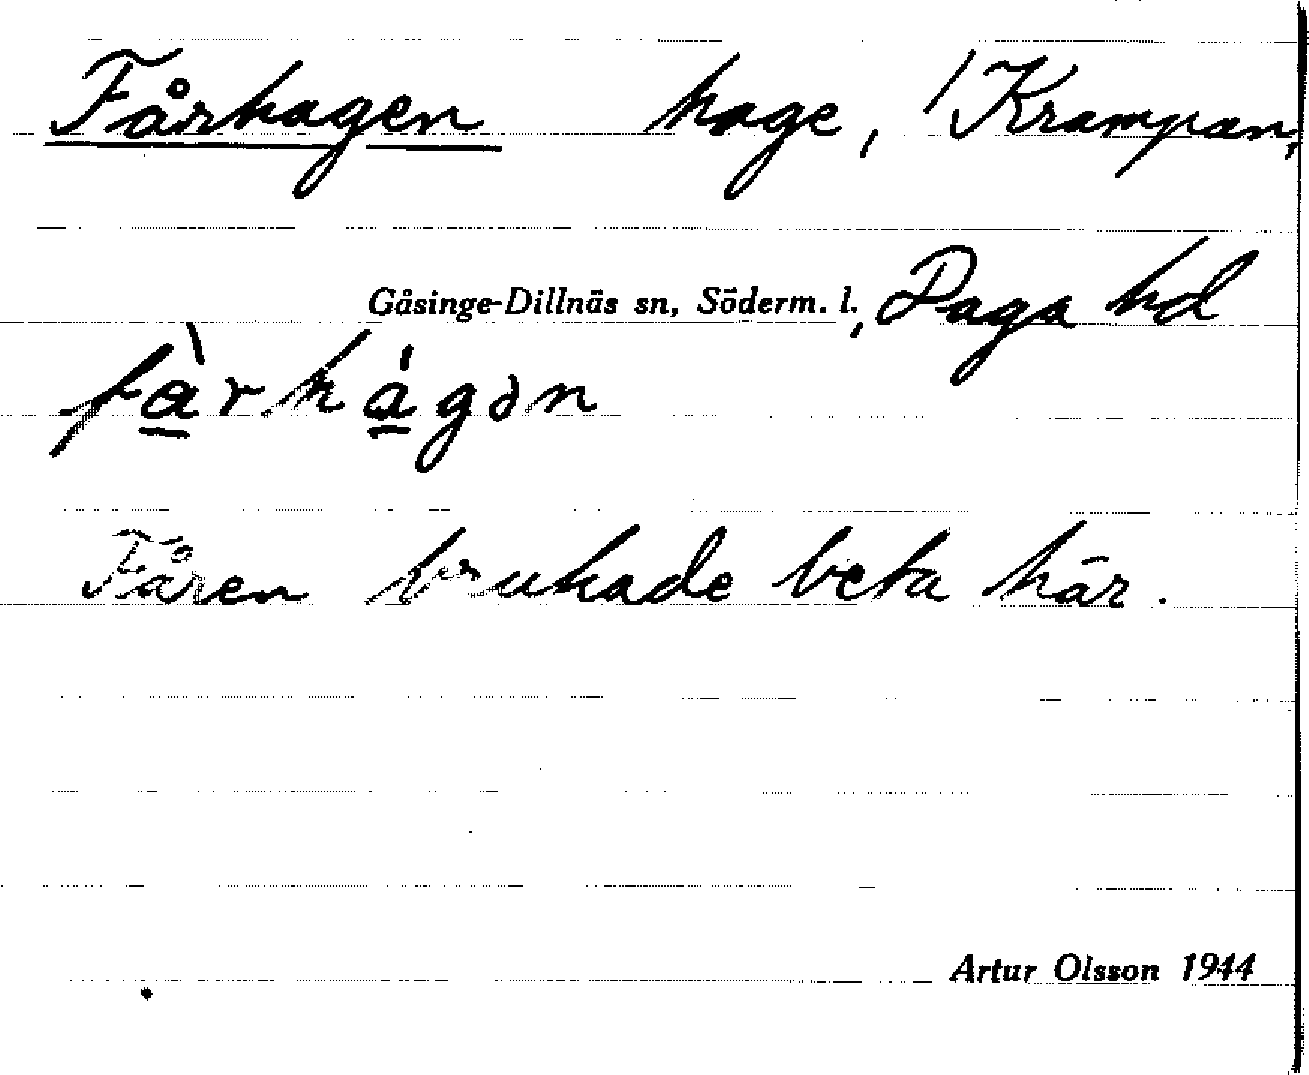 Fårhagen hage, /Krampan,
Gåsinge-Dillnäs sn, Söderm. l., Daga hd
fàrhágən
Fåren brukade beta här.
Artur Olsson 1944